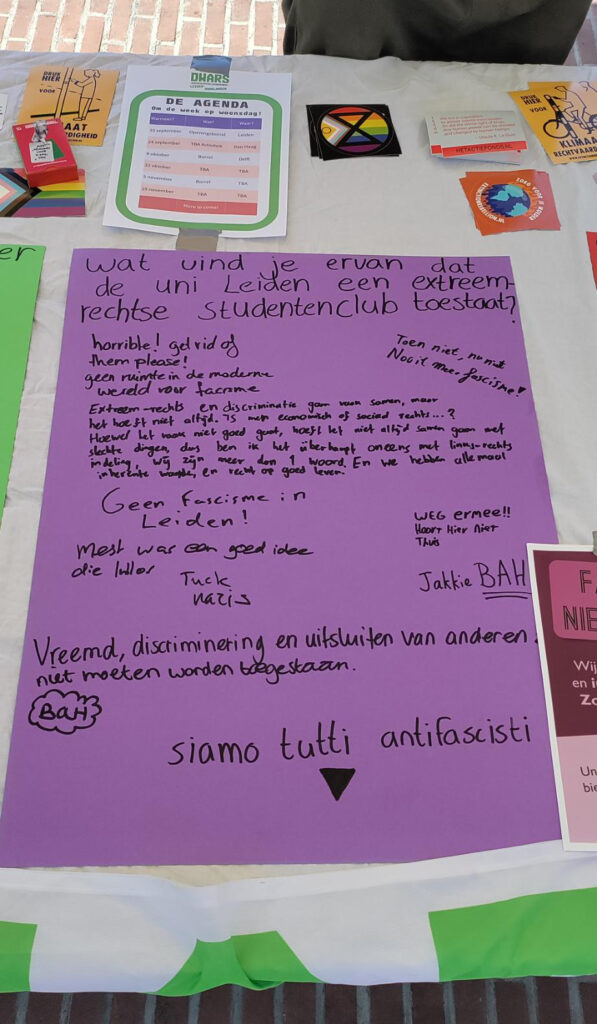 DRUK
HIER
VOOR
DWARS
LEIDEN HAAGLANDEN
DE AGENDA
Om de week op woensdag!
Wanneer?
Wat?
Waar?
Openingsborrel
Leiden
24 september
TBA Activiteit
Den Haag
8 oktober
Borrel
Delft
TBA
TBA
5 november
Borrel
TBA
19 november
TBA
TBA
More to come!
Ursula K. Le Guin
HETACTIEFONDS.NL
DRUK
HIER
VOOR
KLIMAAT
RECHTVAAR
wat vind je ervan dat
de uni Leiden een extreem-
rechtse studentenclub toestaat?
horrible! get rid of
them please!
geen ruimte in de moderne
wereld voor facisme
Toen niet, nu niet
Nooit meer fascisme!
Extreem-rechts en discriminatie gaan vaak samen, maar
het hoeft niet altijd. Is men economisch of sociaal rechts...?
Hoewel het vaak niet goed gaat, hoeft het niet altijd samen gaan met
slechte dingen, dus ben ik het überhaupt oneens met links-rechts
indeling, wij zijn meer dan 1 woord. En we hebben allemaal
inherente waarde, en recht op goed leven.
Geen Fascisme in
Leiden!
WEG ermee!!
Hoort Hier Niet
Thuis
Mest was een goed idee
die
Fuck
nazis
Jakkie BAH
Vreemd, discriminering en uitsluiten van anderen
niet moeten worden toegestaan.
BAH
siamo tutti antifascisti
FA
NIE
Wij
en i
Zo
Un
bie